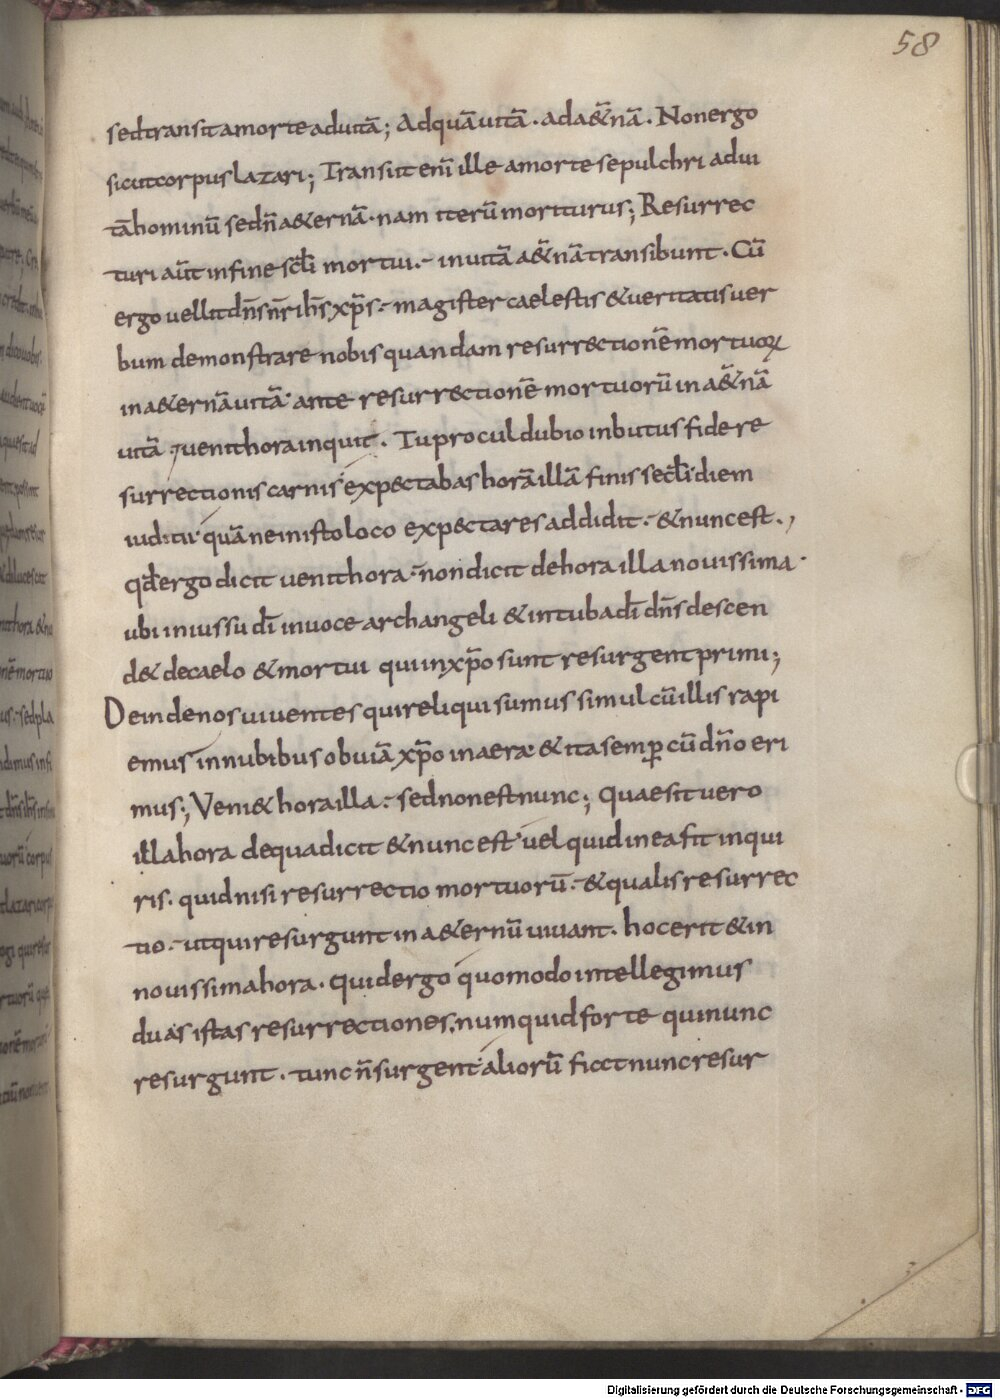 58
sed transit a morte ad uitā; Ad quā uitā · ad a&̄nā · Non ergo
sicut corpus lazari; Transiit enī ille a morte sepulchri ad ui
tā hominū sed n̄ a&ernā · nam iterū moriturus; Resurrec
turi aūt in fine sc̄li mortui · in uitā a&̄nā transibunt · Cū
ergo uellit dn̄s nr̄ ih̄s xp̄s · magister caelestis & ueritatis uer
bum demonstrare nobis quandam resurr&ctionē mortuoꝝ
in a&ernā uitā · ante resurr&ctionē mortuorū in a&̄nā
uitā · uenit hora inquit · Tu procul dubio inbutus fide re
surrectionis carnis exp&ctabas horā illā finis sec̄li diem
iuditii quā ne in isto loco exp&ctares addidit · & nunc est ·,
qd̄ ergo dicit uenit hora · non dicit de hora illa nouissima ·
ubi in iussu dī in uoce archangeli & in tuba dī dn̄s descen
d& de caelo & mortui qui in xp̄o sunt resurgent primi;
Deinde nos uiuentes qui reliqui sumus simul cū illis rapi
emus in nubibus obuiā xp̄o in aera & ita semp̄ cū dn̄o eri
mus; Veni& hora illa · sed non est nunc; Quae sit uero
illa hora de qua dicit & nunc est uel quid in ea fit inqui
ris · quid nisi resurrectio mortuorū · & qualis resurrec
tio · ut qui resurgunt in a&ernū uiuant · hoc erit & in
nouissima hora · Quid ergo quomodo intellegimus
duas istas resurrectiones, numquid forte qui nunc
resurgunt · tunc n̄ surgent aliorū fiat nunc resur
Digitalisierung gefördert durch die Deutsche Forschungsgemeinschaft - DFG